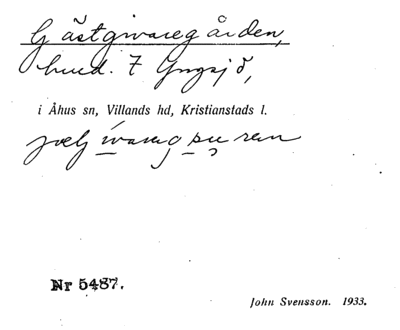 Gästgivaregården,
hmd. t Yngsjö,
i Åhus sn, Villands hd, Kristianstads l.
Nr 5487.
John Svensson. 1933.